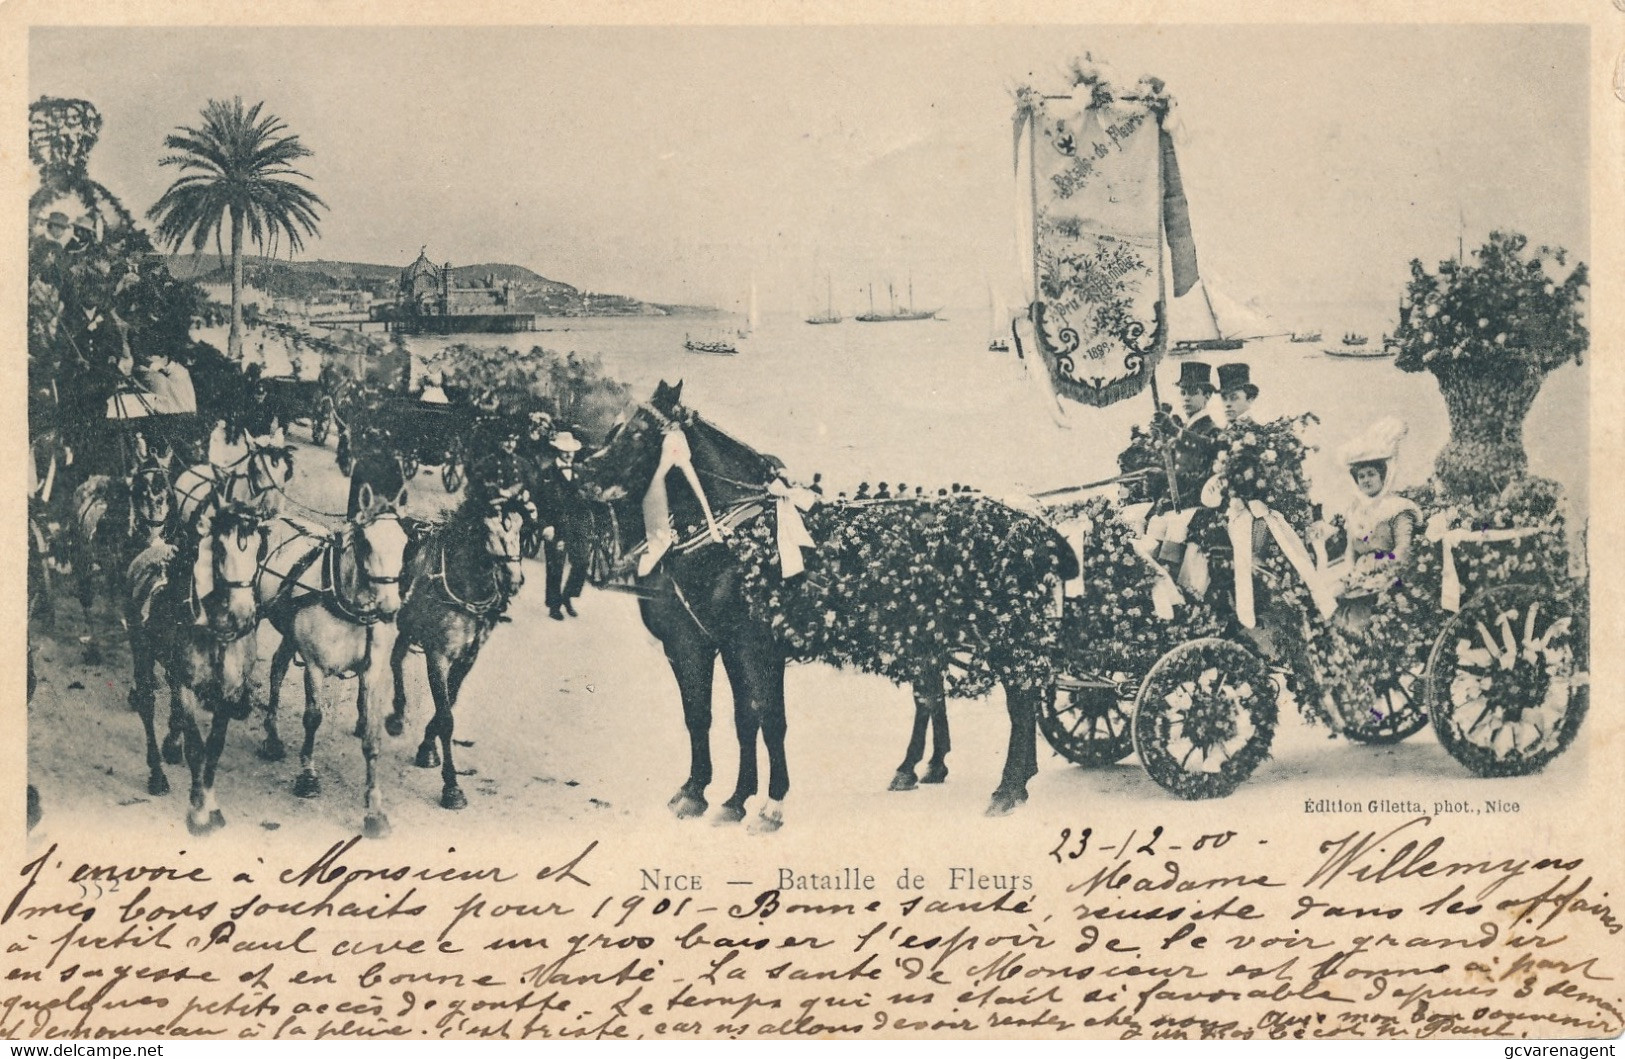 Bataille · de · Fleurs
Prix d'honneur
· 1899 ·
Édition Giletta, phot., Nice
552
NICE — Bataille de Fleurs
23-12-00 -
J'envoie à Monsieur et Madame Willemyns
mes bons souhaits pour 1901 - Bonne santé, réussite dans les affaires
à petit Paul avec un gros baiser l'espoir de le voir grandir
en sagesse et en bonne santé - La santé de Monsieur est bonne à part
quelques petits accès de goutte. Le temps qui ns était si favorable depuis 3 semaines
et de nouveau à la pluie. C'est triste, car ns allons devoir rester chez nous. Avec mon bon souvenir
& un gros bécot à Paul.
gcvarenagent
Generated on Mon, 22 Jul 2024 00:51:50 GMT